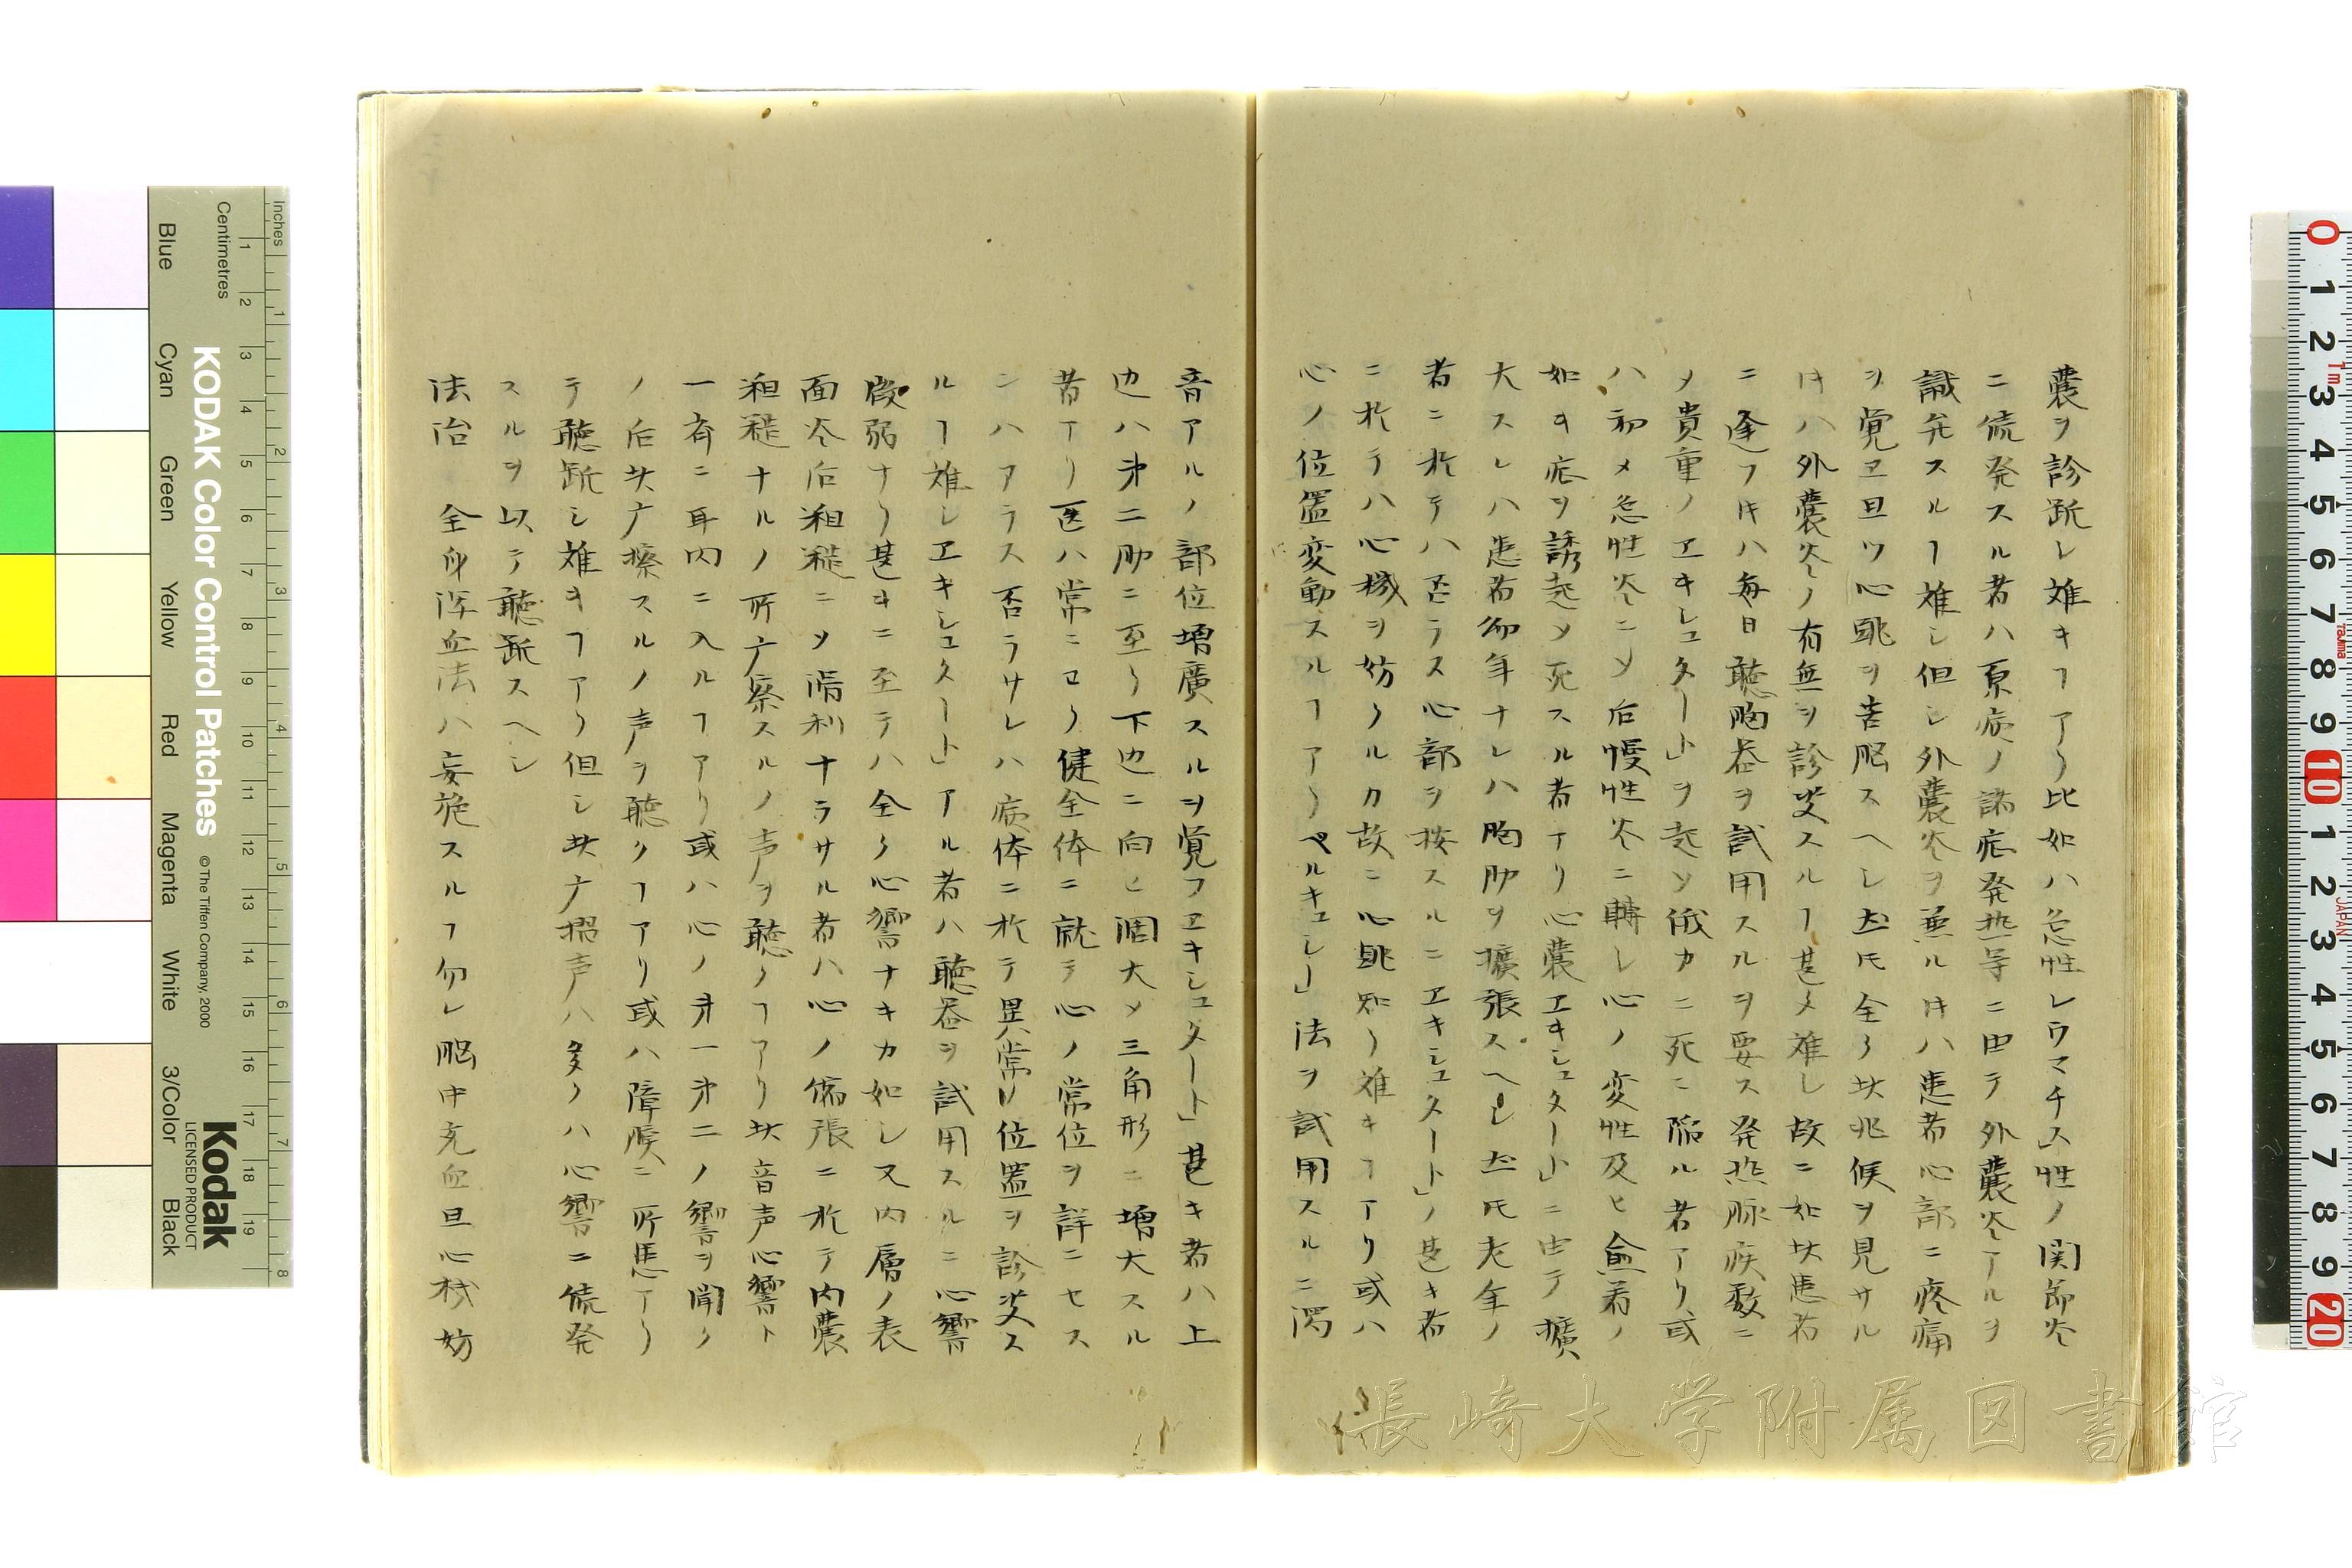 嚢ヲ診断シ難キヿアリ比如ハ急性レウマチス」性ノ関節炎
ニ続発スル者ハ原病ノ諸症発熱等ニ由テ外嚢炎アルヲ
識弁スルヿ難シ但シ外嚢炎ヲ兼ルトキハ患者心部ニ疼痛
ヲ覚ヱ且ツ心跳ヲ苦悩スヘシ然トモ全ク其兆候ヲ見サル
トキハ外嚢炎ノ有無ヲ診定スルヿ甚タ難シ故ニ如此患者
ニ逢フトキハ毎日聴胸器ヲ試用スルヲ要ス発熱脉疾数ニ
メ貴重ノヱキシュタート」ヲ起シ俄カニ死ニ陥ル者アリ或
ハ初メ急性炎ニメ后慢性炎ニ轉シ心ノ変性及ヒ愈着ノ
如キ症ヲ誘起メ死スル者アリ心嚢ヱキシュタート」ニ由テ擴
大スレハ患者幼年ナレハ胸肋ヲ擴張スヘシ然トモ老年ノ
者ニ於テハ否ラス心部ヲ按スルニヱキシュタート」ノ甚キ者
ニ於テハ心機ヲ妨クルカ故ニ心跳知リ難キヿアリ或ハ
心ノ位置変動スルヿアリペルキュシー」法ヲ試用スルニ濁
音アルノ部位増廣スルヲ覚フヱキシュタート」甚キ者ハ上
辺ハ第二肋ニ至リ下辺ニ向ヒ濶大メ三角形ニ増大スル
者アリ医ハ常ニヨク健全体ニ就テ心ノ常位ヲ詳ニセス
ンハアラス否ラサレハ病体ニ於テ異常ノ位置ヲ診定ス
ルヿ難シヱキシュタート」アル者ハ聴器ヲ試用スルニ心響
微弱ナリ甚キニ至テハ全ク心響ナキカ如シ又内層ノ表
面炎后粗糙ニメ滑利ナラサル者ハ心ノ縮張ニ於テ内嚢
粗糙ナルノ所广察スルノ声ヲ聴クヿアリ其音声心響ト
一斉ニ耳内ニ入ルヿアリ或ハ心ノ第一第二ノ響ヲ聞ク
ノ后其广擦スルノ声ヲ聴クヿアリ或ハ障候ニ所患アリ
テ聴断シ難キヿアリ但シ其广擦声ハ多クハ心響ニ続発
スルヲ以テ聴断スヘシ
法治　全身瀉血法ハ妄施スルヿ勿レ脳中充血且心機妨
KODAK Color Control Patches
© The Tiffen Company, 2000
Kodak
LICENSED PRODUCT
Inches
Centimetres
Blue Cyan Green Yellow Red Magenta White 3/Color Black
長崎大学附属図書館